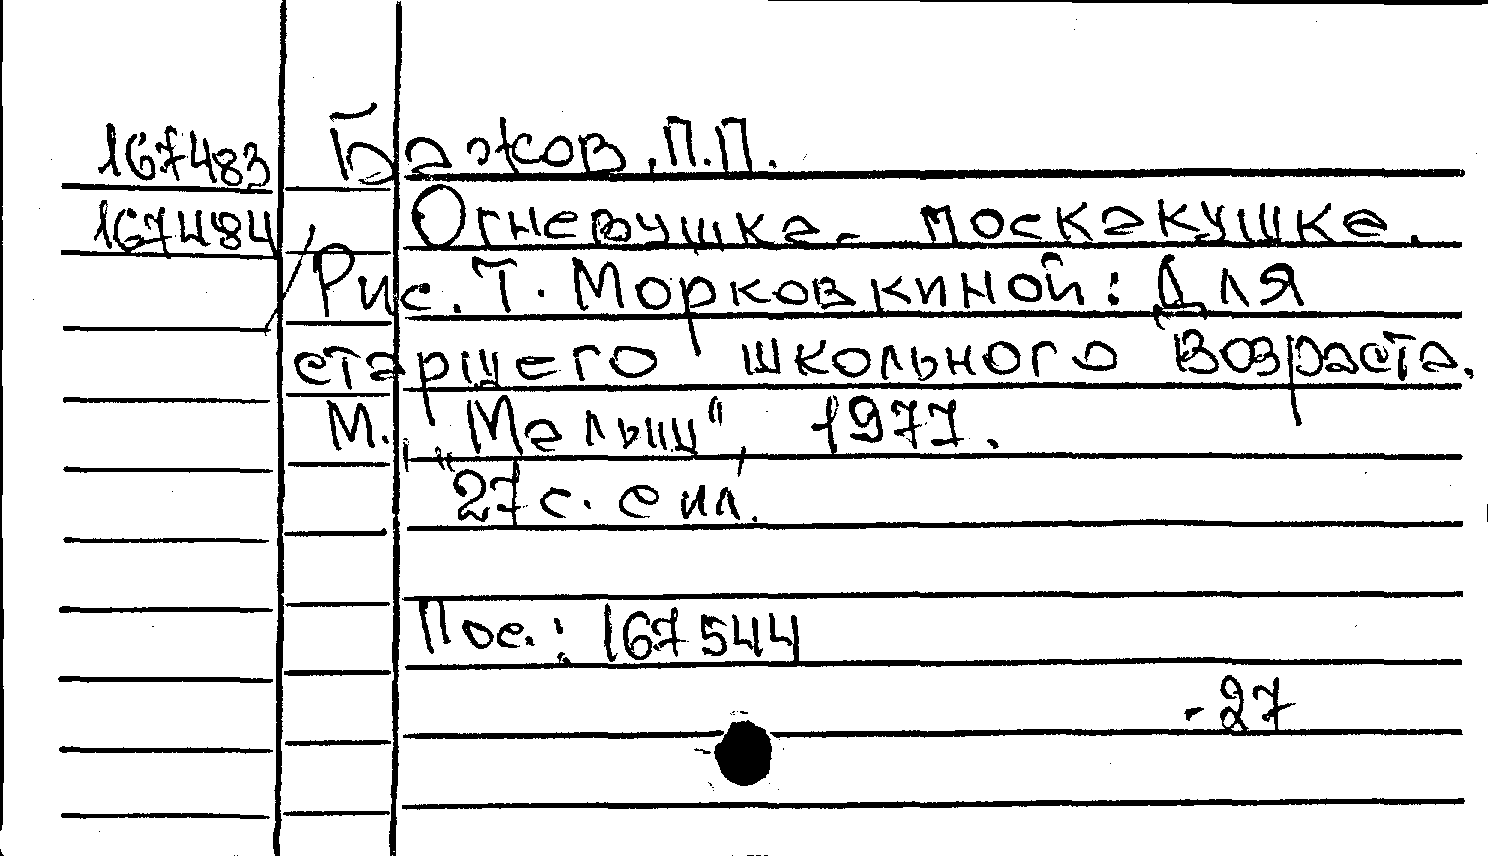 167483 Бажов, П.П.
167484 Огневушка-поскакушка.
/Рис. Т. Морковкиной: Для
старшего школьного возраста.
М., "Малыш", 1977.
27 с. с ил.
Пос.: 167544
-27